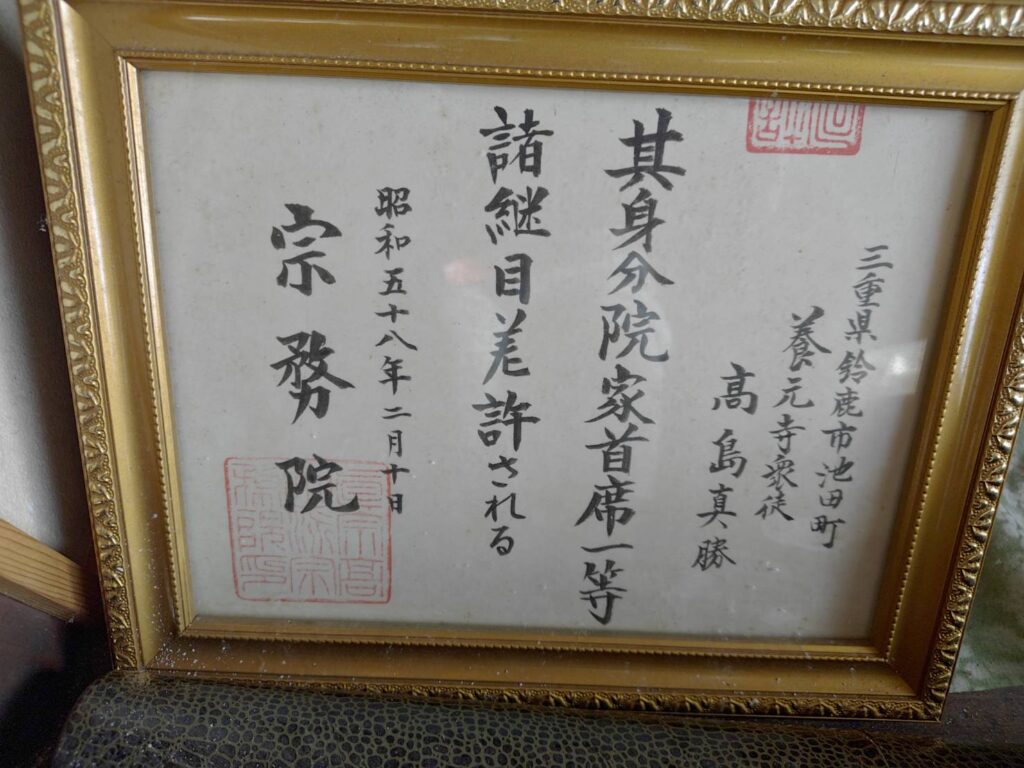 三重県鈴鹿市池田町
養元寺衆徒
高島真勝
其身分院家首席一等
諸継目差許される
昭和五十八年二月十日
宗務院